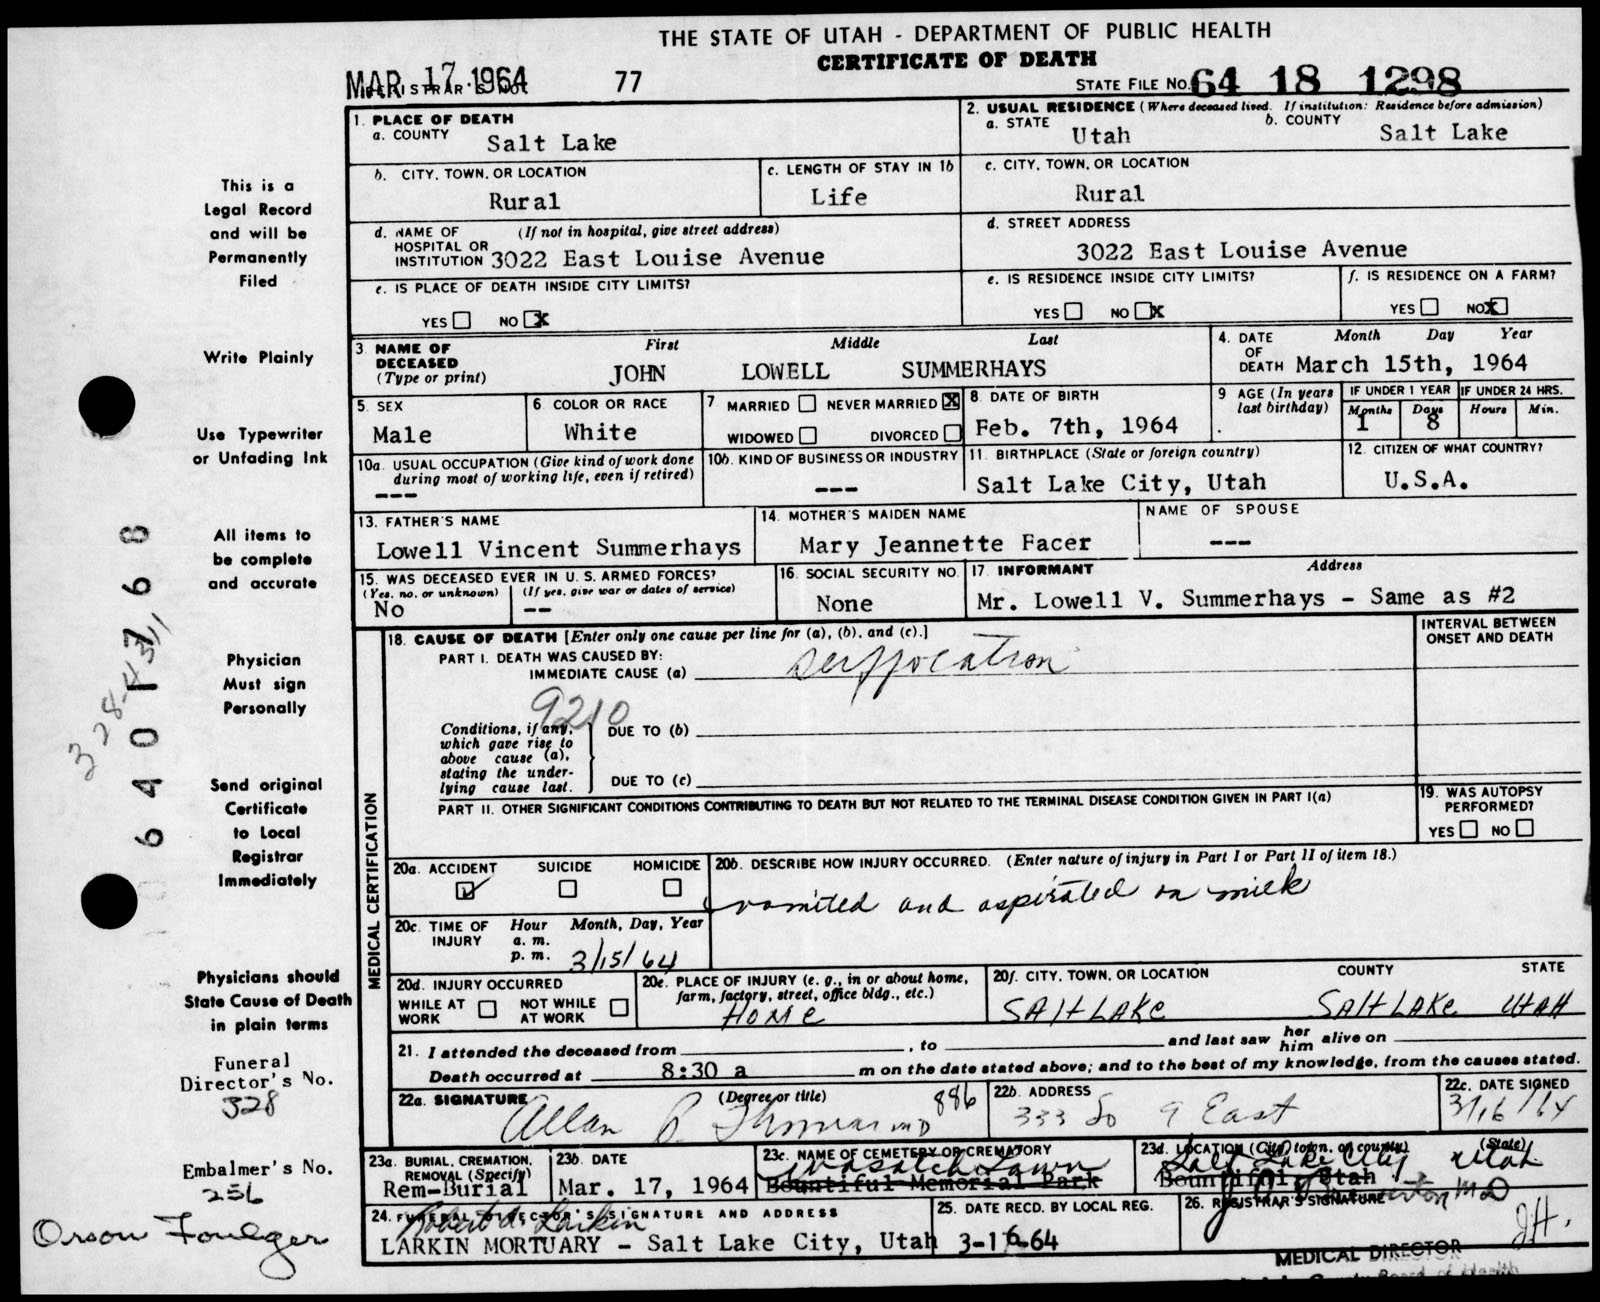 THE STATE OF UTAH - DEPARTMENT OF PUBLIC HEALTH
CERTIFICATE OF DEATH
MAR 17 1964
REGISTRAR'S NO. 77
STATE FILE NO. 64 18 1298
1. PLACE OF DEATH
a. COUNTY Salt Lake
2. USUAL RESIDENCE (Where deceased lived. If institution: Residence before admission)
a. STATE Utah b. COUNTY Salt Lake
b. CITY, TOWN, OR LOCATION Rural
c. LENGTH OF STAY IN 1b Life
c. CITY, TOWN, OR LOCATION Rural
d. NAME OF HOSPITAL OR INSTITUTION (If not in hospital, give street address) 3022 East Louise Avenue
d. STREET ADDRESS 3022 East Louise Avenue
e. IS PLACE OF DEATH INSIDE CITY LIMITS?
YES NO X
e. IS RESIDENCE INSIDE CITY LIMITS?
YES NO X
f. IS RESIDENCE ON A FARM?
YES NO X
3. NAME OF DECEASED (Type or print)
First Middle Last
JOHN LOWELL SUMMERHAYS
4. DATE OF DEATH Month Day Year
March 15th, 1964
5. SEX Male
6. COLOR OR RACE White
7. MARRIED NEVER MARRIED X
WIDOWED DIVORCED
8. DATE OF BIRTH Feb. 7th, 1964
9. AGE (In years last birthday)
IF UNDER 1 YEAR IF UNDER 24 HRS.
Months 1 Days 8 Hours Min.
10a. USUAL OCCUPATION (Give kind of work done during most of working life, even if retired) ---
10b. KIND OF BUSINESS OR INDUSTRY ---
11. BIRTHPLACE (State or foreign country) Salt Lake City, Utah
12. CITIZEN OF WHAT COUNTRY? U.S.A.
13. FATHER'S NAME Lowell Vincent Summerhays
14. MOTHER'S MAIDEN NAME Mary Jeannette Facer
NAME OF SPOUSE ---
15. WAS DECEASED EVER IN U.S. ARMED FORCES?
(Yes, no, or unknown) No (If yes, give war or dates of service) --
16. SOCIAL SECURITY NO. None
17. INFORMANT Address
Mr. Lowell V. Summerhays - Same as #2
MEDICAL CERTIFICATION
18. CAUSE OF DEATH [Enter only one cause per line for (a), (b), and (c).]
INTERVAL BETWEEN ONSET AND DEATH
PART I. DEATH WAS CAUSED BY:
IMMEDIATE CAUSE (a) suffocation
9210
Conditions, if any, which gave rise to above cause (a), stating the underlying cause last.
DUE TO (b)
DUE TO (c)
PART II. OTHER SIGNIFICANT CONDITIONS CONTRIBUTING TO DEATH BUT NOT RELATED TO THE TERMINAL DISEASE CONDITION GIVEN IN PART I(a)
19. WAS AUTOPSY PERFORMED?
YES NO
20a. ACCIDENT SUICIDE HOMICIDE
20b. DESCRIBE HOW INJURY OCCURRED. (Enter nature of injury in Part I or Part II of item 18.)
vomited and aspirated on milk
20c. TIME OF INJURY Hour Month, Day, Year
a. m.
p. m. 3/15/64
20d. INJURY OCCURRED
WHILE AT WORK NOT WHILE AT WORK
20e. PLACE OF INJURY (e. g., in or about home, farm, factory, street, office bldg., etc.) HOME
20f. CITY, TOWN, OR LOCATION COUNTY STATE
SALT LAKE SALT LAKE UTAH
21. I attended the deceased from , to and last saw her him alive on
Death occurred at 8:30 a m on the date stated above; and to the best of my knowledge, from the causes stated.
22a. SIGNATURE (Degree or title) 886
Allan MD
22b. ADDRESS 333 So 9 East
22c. DATE SIGNED 3/16/64
23a. BURIAL, CREMATION, REMOVAL (Specify) Rem-Burial
23b. DATE Mar. 17, 1964
23c. NAME OF CEMETERY OR CREMATORY Wasatch Lawn
Bountiful Memorial Park
23d. LOCATION (City, town, or county) (State) Salt Lake City, Utah
Bountiful Utah
24. FUNERAL DIRECTOR'S SIGNATURE AND ADDRESS
Robert A. Larkin
LARKIN MORTUARY - Salt Lake City, Utah
25. DATE RECD. BY LOCAL REG. 3-16-64
26. REGISTRAR'S SIGNATURE
MD
MEDICAL DIRECTOR
Board of Health
This is a
Legal Record
and will be
Permanently
Filed
Write Plainly
Use Typewriter
or Unfading Ink
All items to
be complete
and accurate
Physician
Must sign
Personally
Send original
Certificate
to Local
Registrar
Immediately
Physicians should
State Cause of Death
in plain terms
Funeral
Director's No.
328
Embalmer's No.
256
Orson Foulger